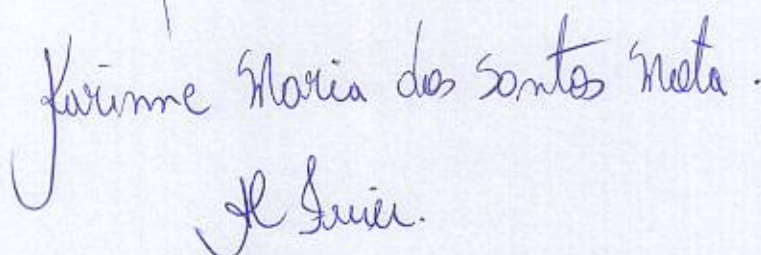 Karinne Maria dos Santos Mota.